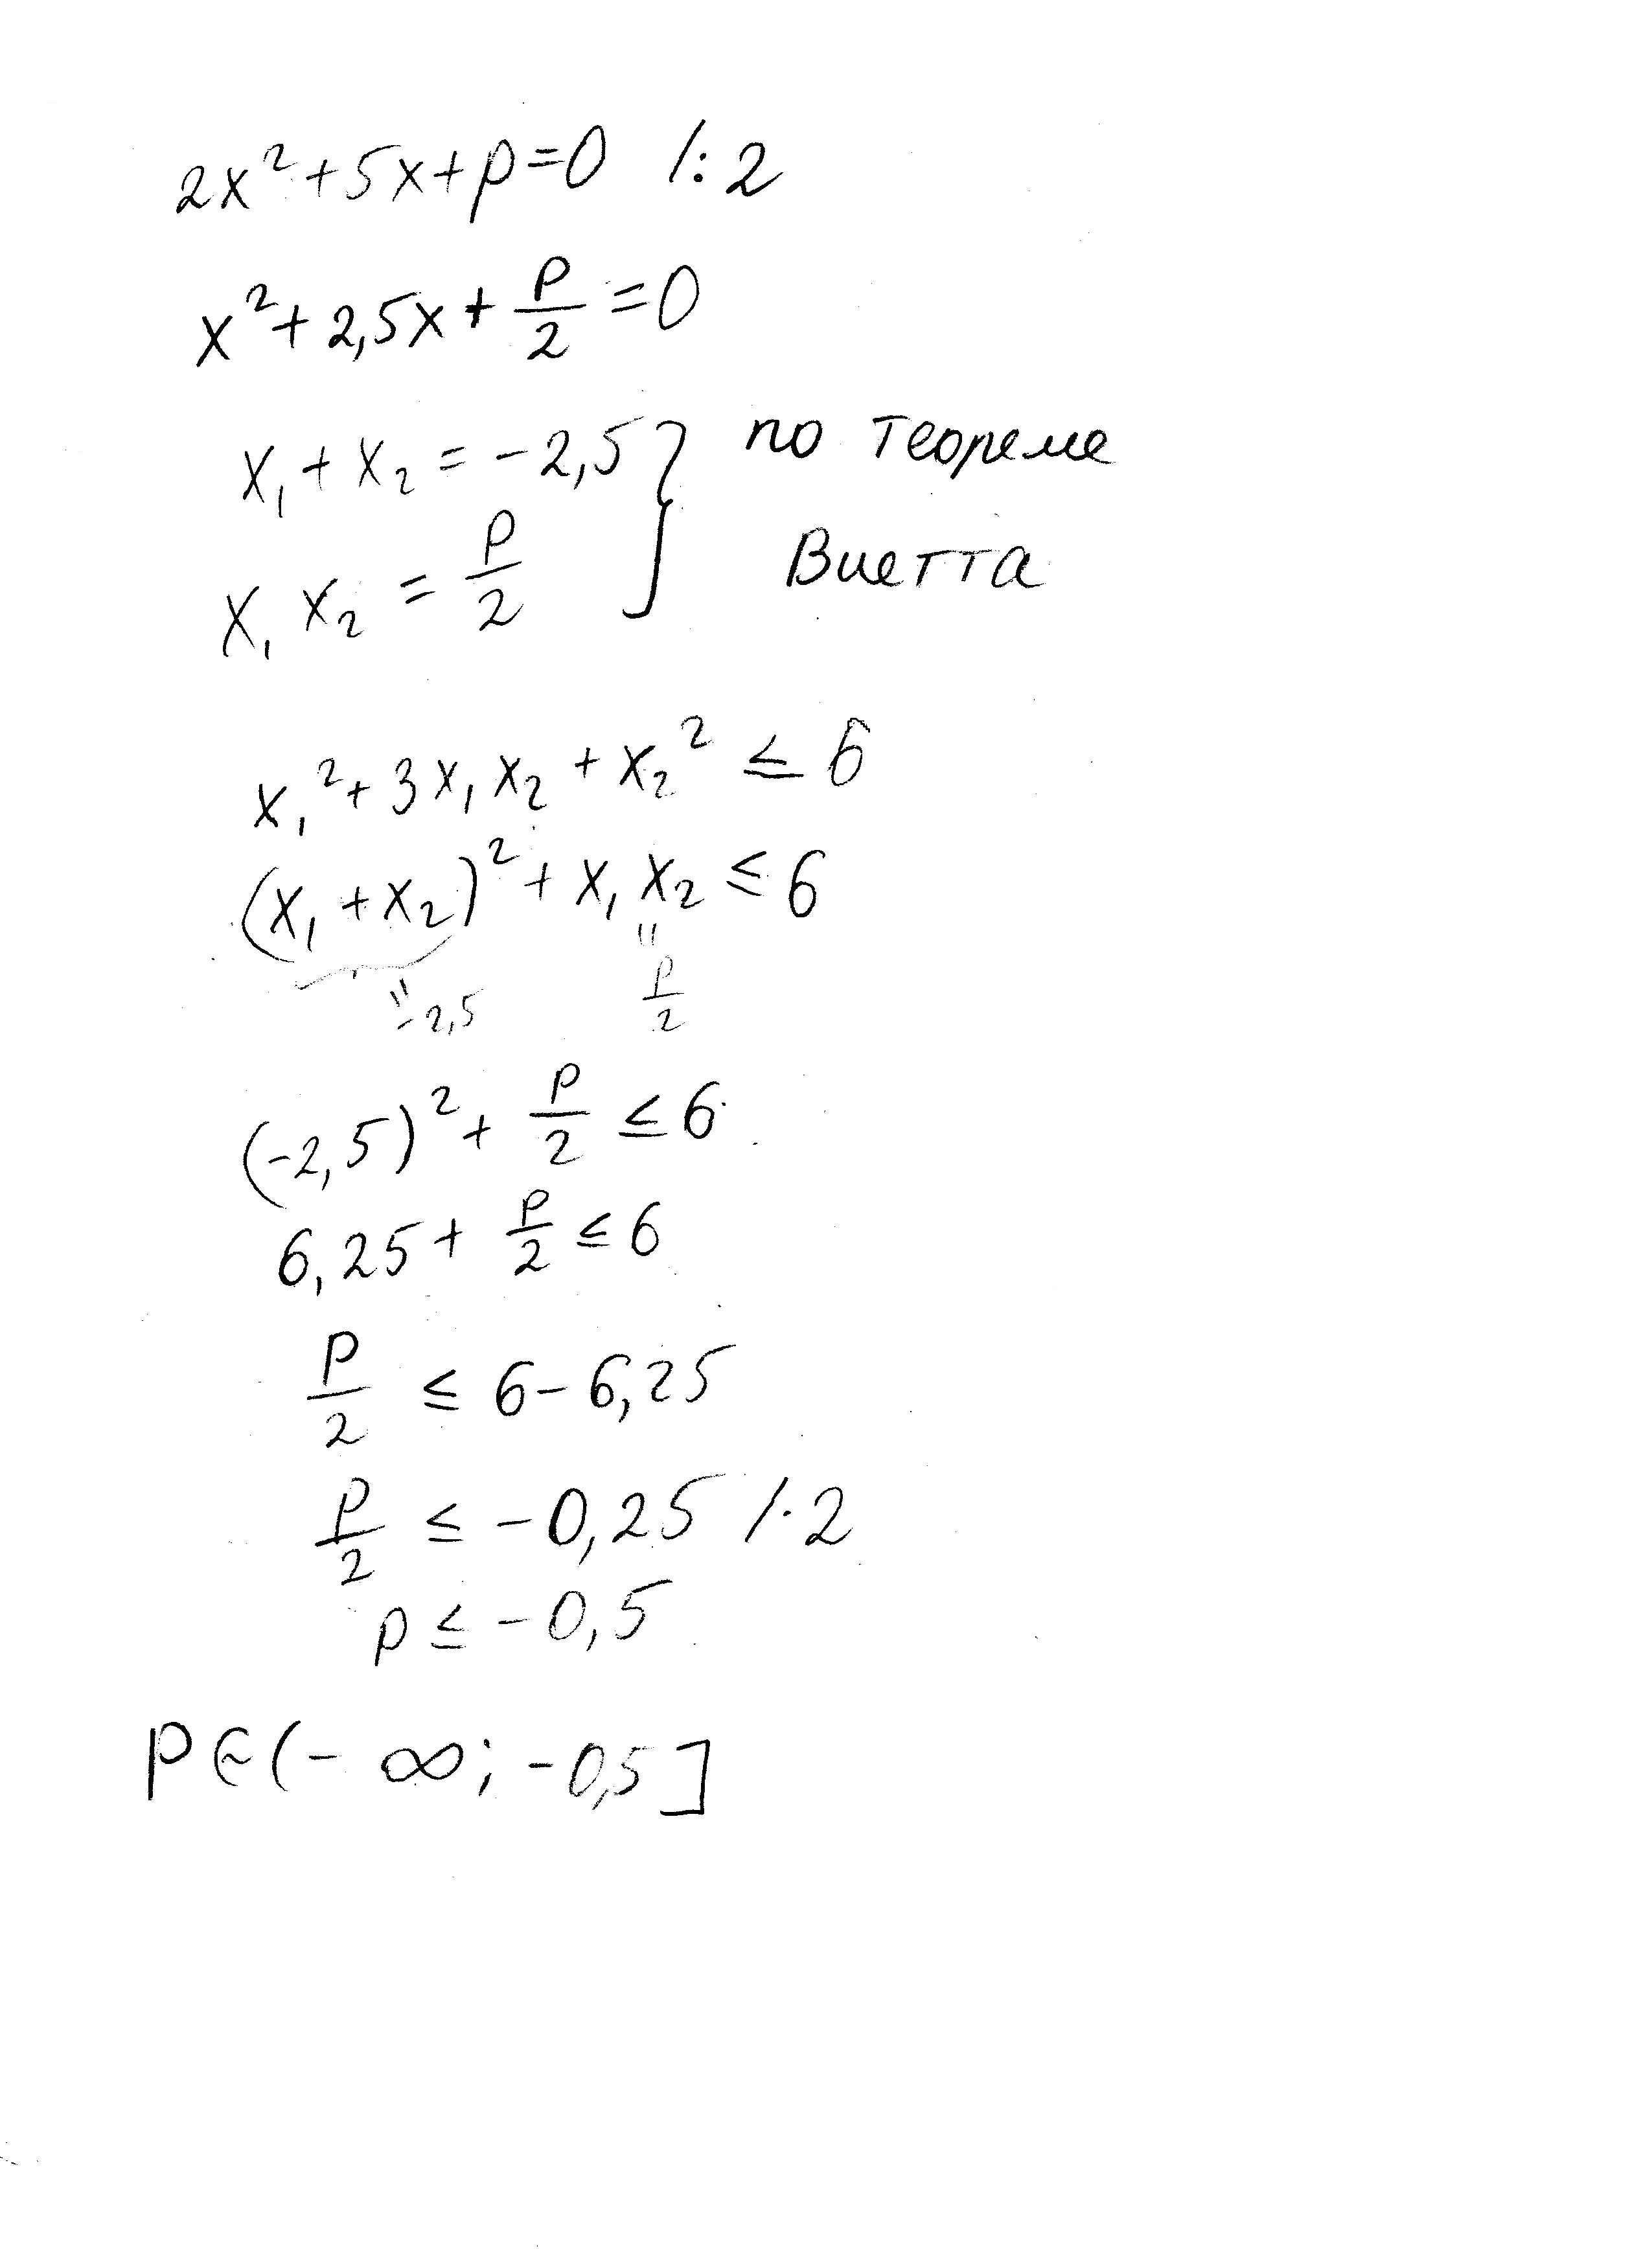 2x²+5x+p=0 /:2
x²+2,5x+p/2=0
x₁+x₂=-2,5 } по теореме
x₁x₂=p/2 Виетта
x₁²+3x₁x₂+x₂²≤6
(x₁+x₂)²+x₁x₂≤6
=-2,5 = p/2
(-2,5)²+p/2≤6
6,25+p/2≤6
p/2≤6-6,25
p/2≤-0,25 /·2
p≤-0,5
p∈(-∞;-0,5]